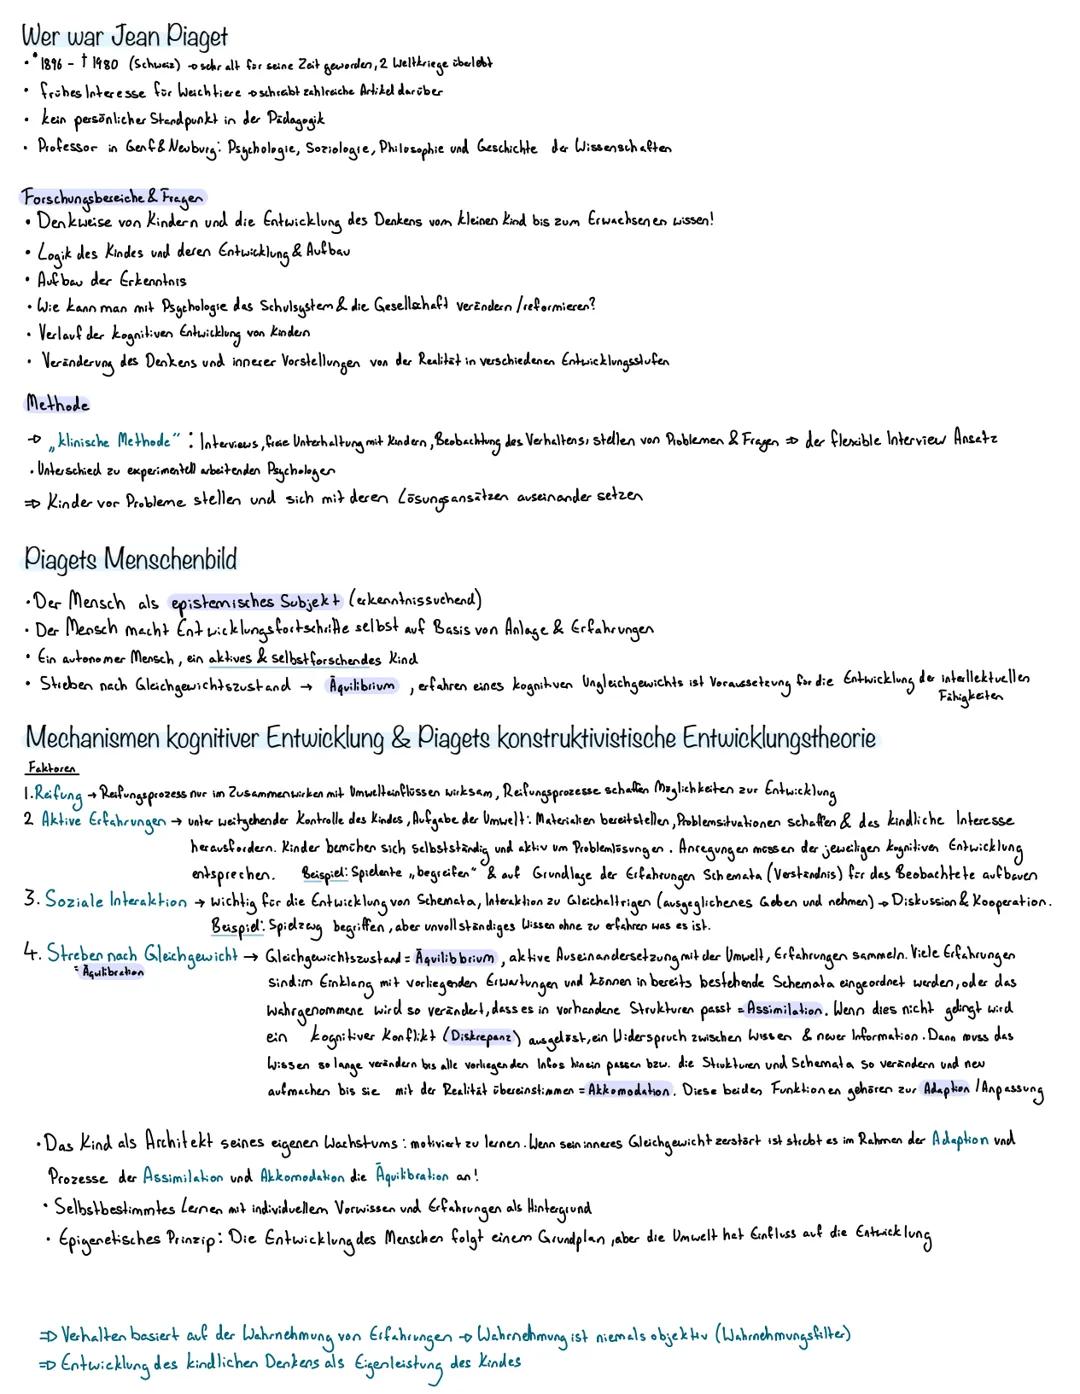 Wer war Jean Piaget
• *1896 - †1980 (Schweiz) → sehr alt für seine Zeit geworden, 2 Weltkriege überlebt
• frühes Interesse für Weichtiere → schreibt zahlreiche Artikel darüber
• kein persönlicher Standpunkt in der Pädagogik
• Professor in Genf & Neuburg: Psychologie, Soziologie, Philosophie und Geschichte der Wissenschaften
Forschungsbereiche & Fragen
• Denkweise von Kindern und die Entwicklung des Denkens vom kleinen Kind bis zum Erwachsenen wissen!
• Logik des Kindes und deren Entwicklung & Aufbau
• Aufbau der Erkenntnis
• Wie kann man mit Psychologie das Schulsystem & die Gesellschaft verändern / reformieren?
• Verlauf der kognitiven Entwicklung von Kindern
• Veränderung des Denkens und innerer Vorstellungen von der Realität in verschiedenen Entwicklungsstufen
Methode
→ „klinische Methode“: Interviews, freie Unterhaltung mit Kindern, Beobachtung des Verhaltens, stellen von Problemen & Fragen ⇒ der flexible Interview Ansatz
• Unterschied zu experimentell arbeitenden Psychologen
⇒ Kinder vor Probleme stellen und sich mit deren Lösungsansätzen auseinander setzen
Piagets Menschenbild
• Der Mensch als epistemisches Subjekt (erkenntnissuchend)
• Der Mensch macht Entwicklungsfortschritte selbst auf Basis von Anlage & Erfahrungen
• Ein autonomer Mensch, ein aktives & selbstforschendes Kind
• Streben nach Gleichgewichtszustand → Äquilibrium, erfahren eines kognitiven Ungleichgewichts ist Voraussetzung für die Entwicklung der intellektuellen
Fähigkeiten
Mechanismen kognitiver Entwicklung & Piagets konstruktivistische Entwicklungstheorie
Faktoren
1. Reifung → Reifungsprozess nur im Zusammenwirken mit Umwelteinflüssen wirksam, Reifungsprozesse schaffen Möglichkeiten zur Entwicklung
2 Aktive Erfahrungen → unter weitgehender Kontrolle des Kindes, Aufgabe der Umwelt: Materialien bereitstellen, Problemsituationen schaffen & das kindliche Interesse
herausfordern. Kinder bemühen sich selbstständig und aktiv um Problemlösungen. Anregungen müssen der jeweiligen kognitiven Entwicklung
entsprechen. Beispiel: Spielente „begreifen“ & auf Grundlage der Erfahrungen Schemata (Verständnis) für das Beobachtete aufbauen
3. Soziale Interaktion → wichtig für die Entwicklung von Schemata, Interaktion zu Gleichaltrigen (ausgeglichenes Geben und nehmen) → Diskussion & Kooperation.
Beispiel: Spielzeug begriffen, aber unvollständiges Wissen ohne zu erfahren was es ist.
4. Streben nach Gleichgewicht → Gleichgewichtszustand = Äquilibbrium, aktive Auseinandersetzung mit der Umwelt, Erfahrungen sammeln. Viele Erfahrungen
= Äquilibration
sind im Einklang mit vorliegenden Erwartungen und können in bereits bestehende Schemata eingeordnet werden, oder das
Wahrgenommene wird so verändert, dass es in vorhandene Strukturen passt = Assimilation. Wenn dies nicht gelingt wird
ein kognitiver Konflikt (Diskrepanz) ausgelöst, ein Widerspruch zwischen Wissen & neuer Information. Dann muss das
Wissen so lange verändern bis alle vorliegenden Infos hinein passen bzw. die Strukturen und Schemata so verändern und neu
aufmachen bis sie mit der Realität übereinstimmen = Akkomodation. Diese beiden Funktionen gehören zur Adaption / Anpassung
• Das Kind als Architekt seines eigenen Wachstums: motiviert zu lernen. Wenn sein inneres Gleichgewicht zerstört ist strebt es im Rahmen der Adaption und
Prozesse der Assimilation und Akkomodation die Äquilibration an!
• Selbstbestimmtes Lernen mit individuellem Vorwissen und Erfahrungen als Hintergrund
• Epigenetisches Prinzip: Die Entwicklung des Menschen folgt einem Grundplan, aber die Umwelt hat Einfluss auf die Entwicklung
⇒ Verhalten basiert auf der Wahrnehmung von Erfahrungen → Wahrnehmung ist niemals objektiv (Wahrnehmungsfilter)
⇒ Entwicklung des kindlichen Denkens als Eigenleistung des Kindes